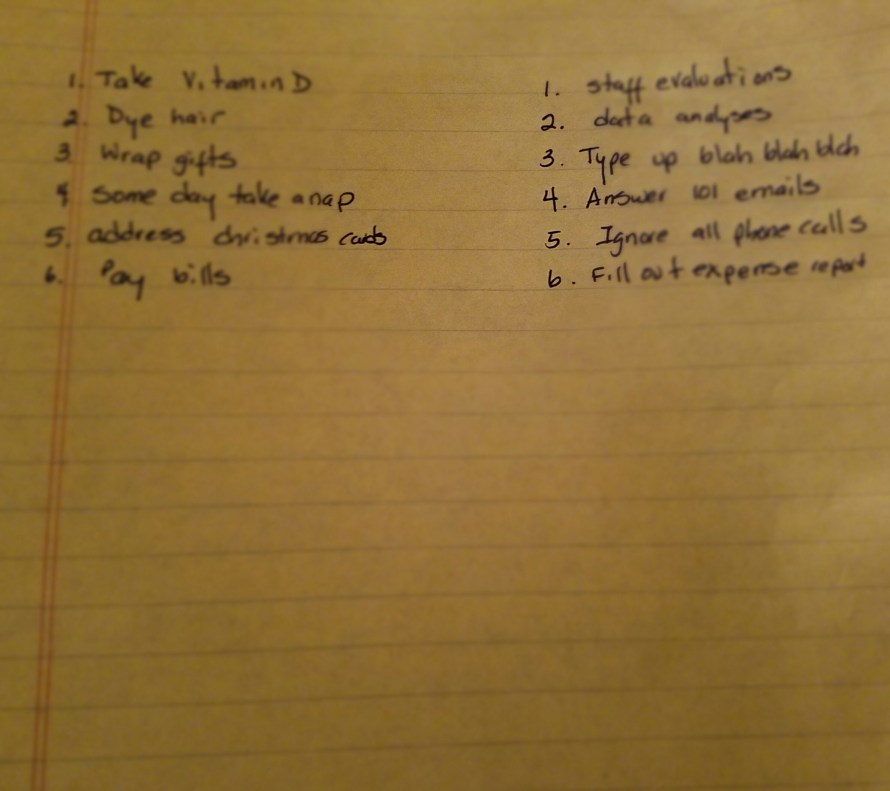 1. Take Vitamin D
2. Dye hair
3. Wrap gifts
4. Some day take a nap
5. address christmas cards
6. Pay bills
1. staff evaluations
2. data analyses
3. Type up blah blah blah
4. Answer 101 emails
5. Ignore all phone calls
6. Fill out expense report